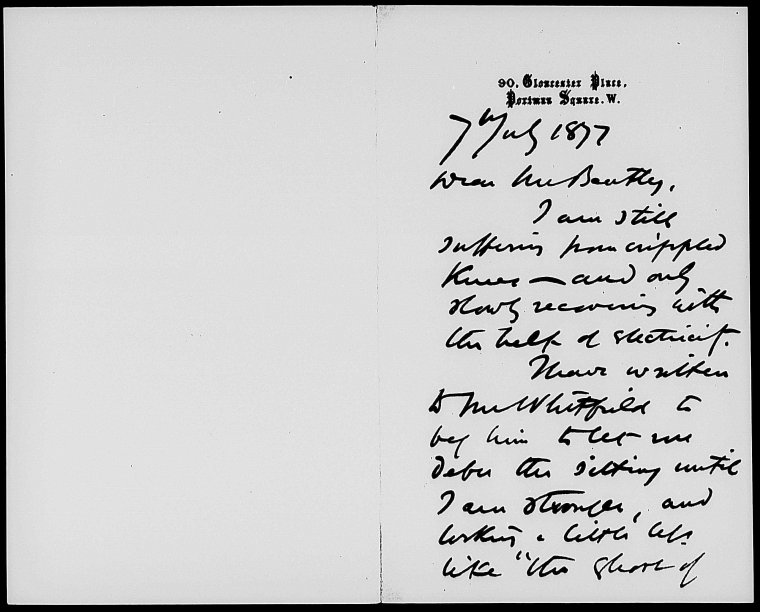 90, Gloucester Place,
Portman Square. W.
7th July 1877
Dear Mr Bentley,
I am still
suffering from crippled
knees — and only
slowly recovering with
the help of electricity.
I have written
to Mr Whitfield to
beg him to let me
defer the sitting until
I am stronger, and
looking a little less
like "the ghost of